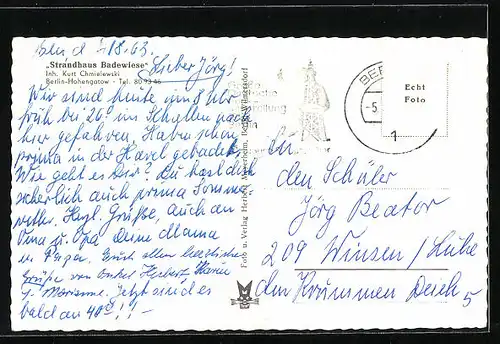 „Strandhaus Badewiese"
Inh. Kurt Chmielewski
Berlin-Hohengatow - Tel. 80 93 46
Lieber Jörg!
Wir sind heute um 8 Uhr
früh bei 20° im Schatten nach
hier gefahren. Haben schon
prima in der Havel gebadet.
Wie geht es Dir? Du hast doch
sicherlich auch prima Sommer
wetter. Hzgl. Grüße, auch an
Oma u. Opa Deine Mama
u. Papa. Euch allen herzliche
Grüße von Onkel Herbert Hanni
u. Marianne. Jetzt sind es
bald an 40°!!
Foto u. Verlag Herbert Berlin-Wilmersdorf
BER
-5.
1
Echt
Foto
An
den Schüler
Jörg Beator
209 Winsen/Luhe
den Krummen Deich 5